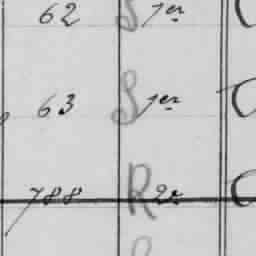 62 S 1er
63 S 1er
788 R 2e